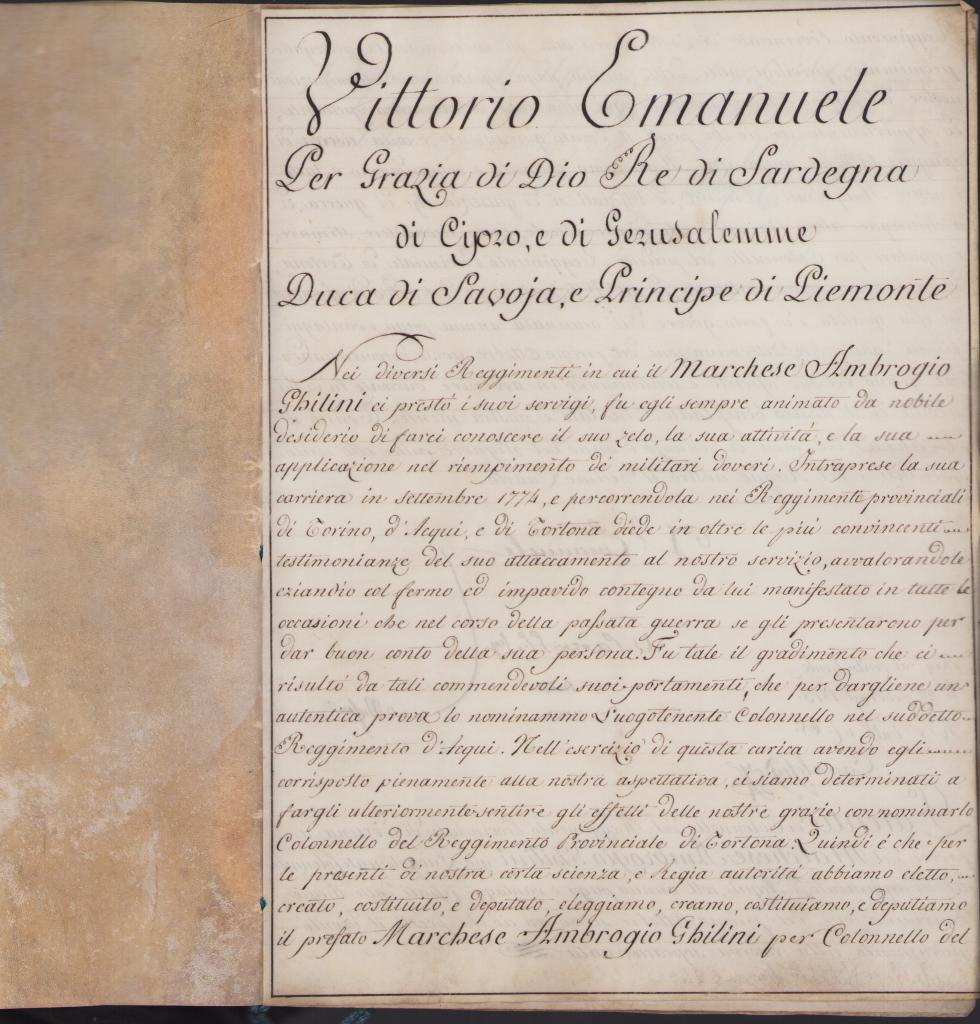 Vittorio Emanuele
Per Grazia di Dio Re di Sardegna
di Cipro, e di Gerusalemme
Duca di Savoja, e Principe di Piemonte
Nei diversi Reggimenti in cui il Marchese Ambrogio
Ghilini ci prestò i suoi servigi, fu egli sempre animato da nobile
desiderio di farci conoscere il suo zelo, la sua attività, e la sua
applicazione nel riempimento de' militari doveri. Intraprese la sua
carriera in settembre 1774, e percorrendola nei Reggimenti provinciali
di Torino, d'Acqui, e di Tortona diede in oltre le più convincenti
testimonianze del suo attaccamento al nostro servizio, avvalorandole
eziandio col fermo ed impavido contegno da lui manifestato in tutte le
occasioni che nel corso della passata guerra se gli presentarono per
dar buon conto della sua persona. Fu tale il gradimento che ci
risultò da tali commendevoli suoi portamenti, che per dargliene un'
autentica prova lo nominammo Luogotenente Colonnello nel suddetto
Reggimento d'Acqui. Nell'esercizio di questa carica avendo egli
corrisposto pienamente alla nostra aspettativa, ci siamo determinati a
fargli ulteriormente sentire gli effetti delle nostre grazie con nominarlo
Colonnello del Reggimento Provinciale di Tortona. Quindi è che per
le presenti di nostra certa scienza, e Regia autorità abbiamo eletto,
creato, costituito, e deputato, eleggiamo, creamo, costituiamo, e deputiamo
il prefato Marchese Ambrogio Ghilini per Colonnello del